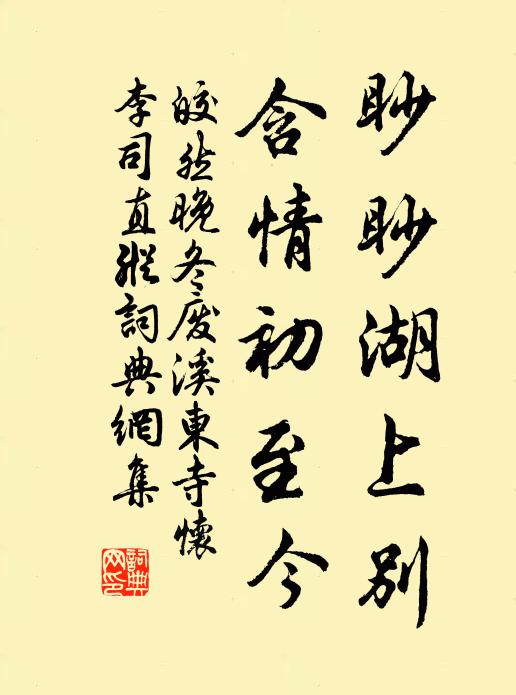 眇眇湖上别
含情初至今
皎然晚冬废溪東寺懷
李司直縱詞典網集
詞典
网印